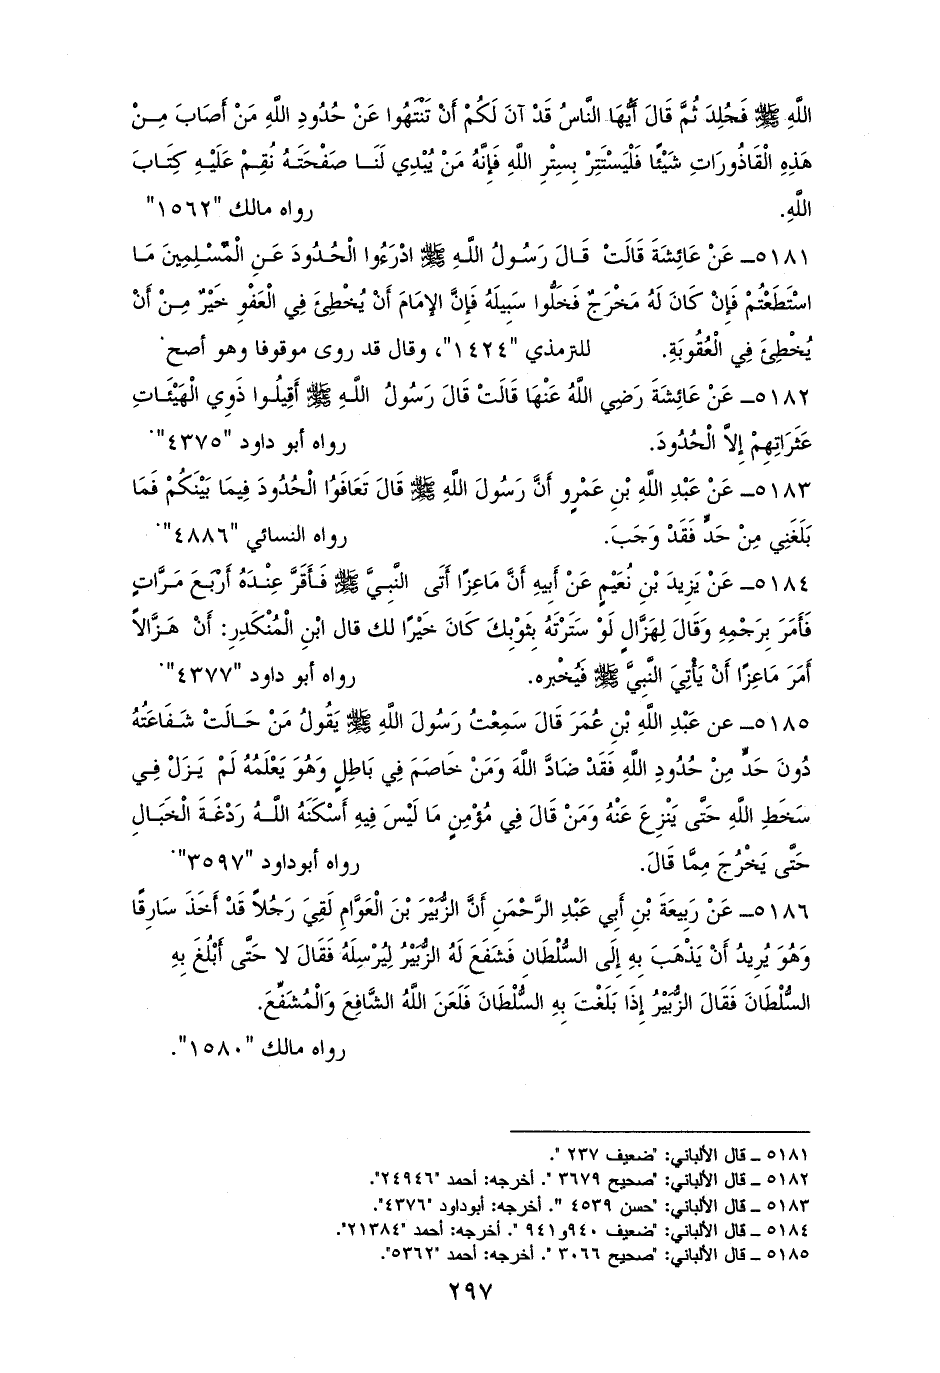 اللَّهِ ﷺ فَجُلِدَ ثُمَّ قَالَ أَيُّهَا النَّاسُ قَدْ آنَ لَكُمْ أَنْ تَنْتَهُوا عَنْ حُدُودِ اللَّهِ مَنْ أَصَابَ مِنْ
هَذِهِ الْقَاذُورَاتِ شَيْئًا فَلْيَسْتَتِرْ بِسِتْرِ اللَّهِ فَإِنَّهُ مَنْ يُبْدِي لَنَا صَفْحَتَهُ نُقِمْ عَلَيْهِ كِتَابَ
اللَّهِ. رواه مالك "١٥٦٢"
٥١٨١ـ عَنْ عَائِشَةَ قَالَتْ قَالَ رَسُولُ اللَّهِ ﷺ ادْرَءُوا الْحُدُودَ عَنِ الْمُسْلِمِينَ مَا
اسْتَطَعْتُمْ فَإِنْ كَانَ لَهُ مَخْرَجٌ فَخَلُّوا سَبِيلَهُ فَإِنَّ الإِمَامَ أَنْ يُخْطِئَ فِي الْعَفْوِ خَيْرٌ مِنْ أَنْ
يُخْطِئَ فِي الْعُقُوبَةِ. للترمذي "١٤٢٤"، وقال قد روى موقوفا وهو أصح.
٥١٨٢ـ عَنْ عَائِشَةَ رَضِي اللَّهُ عَنْهَا قَالَتْ قَالَ رَسُولُ اللَّهِ ﷺ أَقِيلُوا ذَوِي الْهَيْئَاتِ
عَثَرَاتِهِمْ إِلاَّ الْحُدُودَ. رواه أبو داود "٤٣٧٥".
٥١٨٣ـ عَنْ عَبْدِ اللَّهِ بْنِ عَمْرٍو أَنَّ رَسُولَ اللَّهِ ﷺ قَالَ تَعَافَوُا الْحُدُودَ فِيمَا بَيْنَكُمْ فَمَا
بَلَغَنِي مِنْ حَدٍّ فَقَدْ وَجَبَ. رواه النسائي "٤٨٨٦".
٥١٨٤ـ عَنْ يَزِيدَ بْنِ نُعَيْمٍ عَنْ أَبِيهِ أَنَّ مَاعِزًا أَتَى النَّبِيَّ ﷺ فَأَقَرَّ عِنْدَهُ أَرْبَعَ مَرَّاتٍ
فَأَمَرَ بِرَجْمِهِ وَقَالَ لِهَزَّالٍ لَوْ سَتَرْتَهُ بِثَوْبِكَ كَانَ خَيْرًا لك قال ابْنِ الْمُنْكَدِرِ: أَنْ هَزَّالاً
أَمَرَ مَاعِزًا أَنْ يَأْتِيَ النَّبِيَّ ﷺ فَيُخْبِره. رواه أبو داود "٤٣٧٧".
٥١٨٥ـ عن عَبْدِ اللَّهِ بْنِ عُمَرَ قَالَ سَمِعْتُ رَسُولَ اللَّهِ ﷺ يَقُولُ مَنْ حَالَتْ شَفَاعَتُهُ
دُونَ حَدٍّ مِنْ حُدُودِ اللَّهِ فَقَدْ ضَادَّ اللَّهَ وَمَنْ خَاصَمَ فِي بَاطِلٍ وَهُوَ يَعْلَمُهُ لَمْ يَزَلْ فِي
سَخَطِ اللَّهِ حَتَّى يَنْزِعَ عَنْهُ وَمَنْ قَالَ فِي مُؤْمِنٍ مَا لَيْسَ فِيهِ أَسْكَنَهُ اللَّهُ رَدْغَةَ الْخَبَالِ
حَتَّى يَخْرُجَ مِمَّا قَالَ. رواه أبوداود "٣٥٩٧".
٥١٨٦ـ عَنْ رَبِيعَةَ بْنِ أَبِي عَبْدِ الرَّحْمَنِ أَنَّ الزُّبَيْرَ بْنَ الْعَوَّامِ لَقِيَ رَجُلاً قَدْ أَخَذَ سَارِقًا
وَهُوَ يُرِيدُ أَنْ يَذْهَبَ بِهِ إِلَى السُّلْطَانِ فَشَفَعَ لَهُ الزُّبَيْرُ لِيُرْسِلَهُ فَقَالَ لا حَتَّى أَبْلُغَ بِهِ
السُّلْطَانَ فَقَالَ الزُّبَيْرُ إِذَا بَلَغْتَ بِهِ السُّلْطَانَ فَلَعَنَ اللَّهُ الشَّافِعَ وَالْمُشَفِّعَ.
رواه مالك "١٥٨٠".
٥١٨١ ـ قال الألباني: "ضعيف ٢٣٧ ".
٥١٨٢ ـ قال الألباني: "صحيح ٣٦٧٩ ". أخرجه: أحمد "٢٤٩٤٦".
٥١٨٣ ـ قال الألباني: "حسن ٤٥٣٩ ". أخرجه: أبوداود "٤٣٧٦".
٥١٨٤ ـ قال الألباني: "ضعيف ٩٤٠و٩٤١ ". أخرجه: أحمد "٢١٣٨٤".
٥١٨٥ ـ قال الألباني: "صحيح ٣٠٦٦ ". أخرجه: أحمد "٥٣٦٢".
٢٩٧